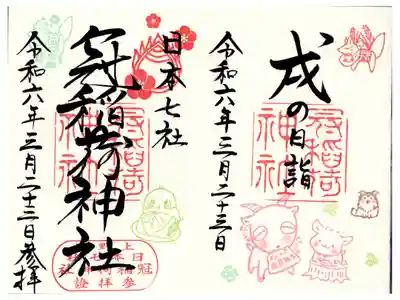 戌の日詣
冠稲荷
神社
令和六年三月二十三日
日本七社
冠稲荷神社
冠稲荷
神社
令和六年三月二十三日参拝
参拝證